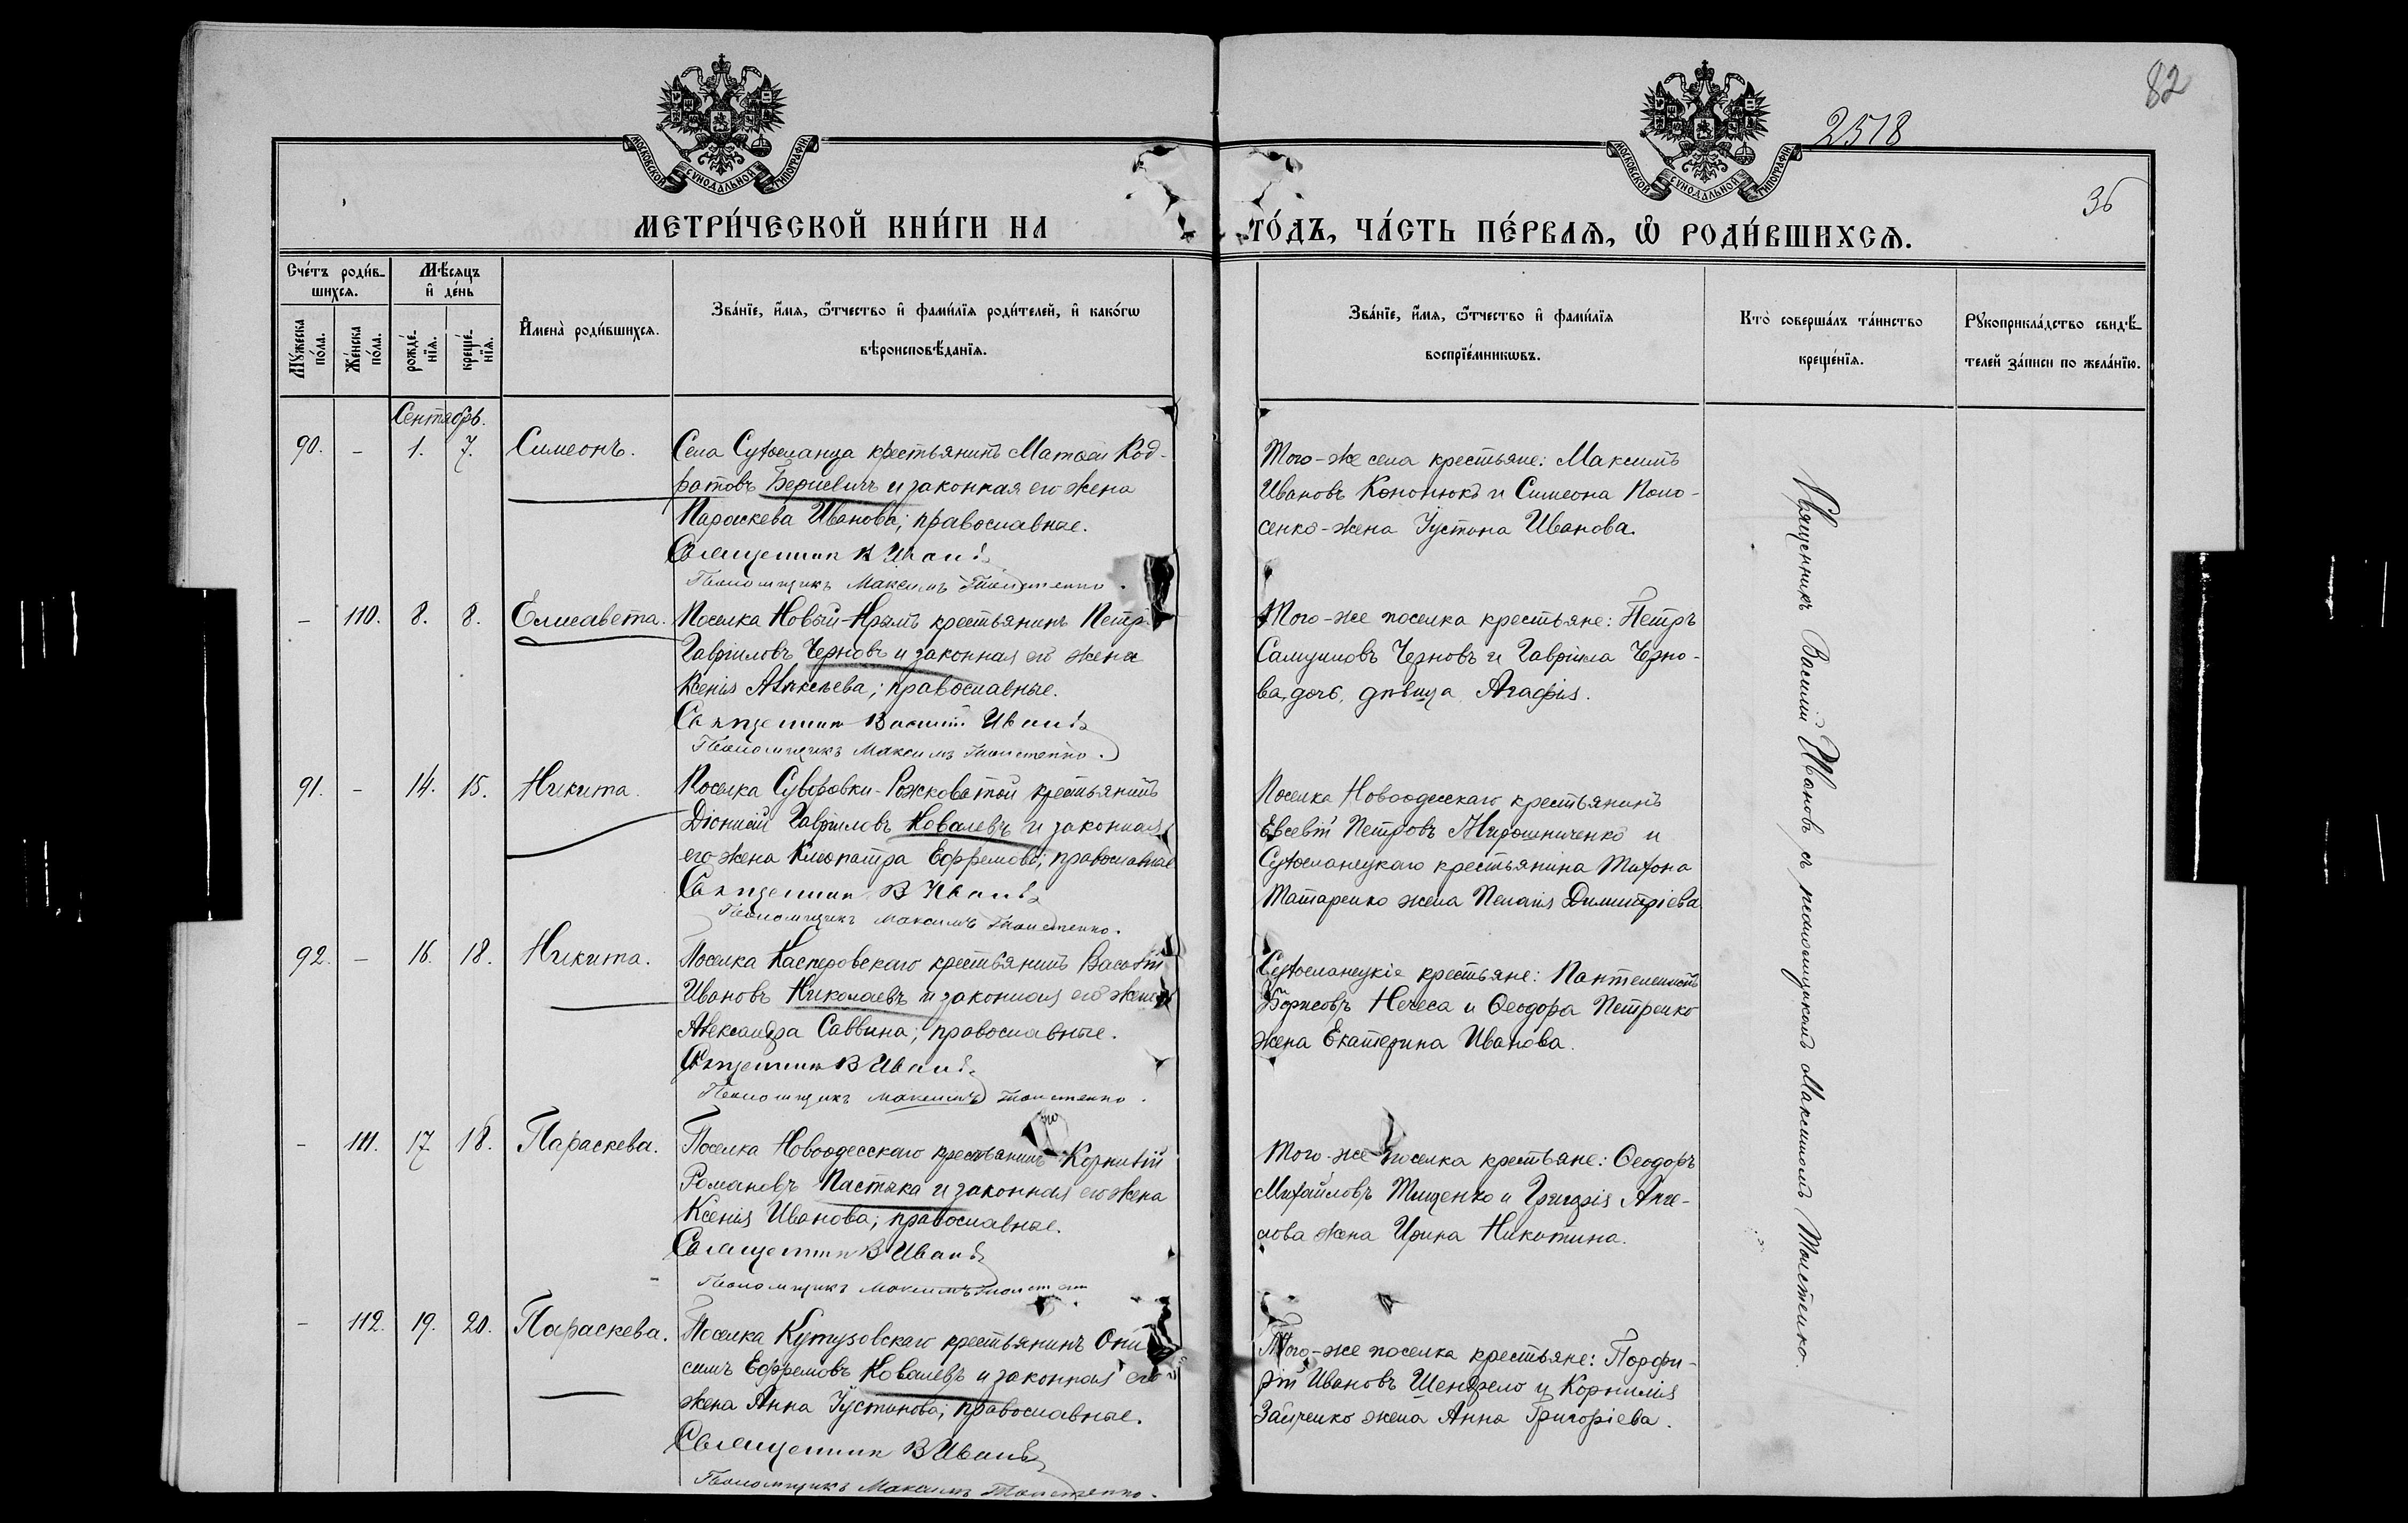 82
2518
36
МОСКОВСКОЙ СѴНОДАЛЬНОЙ ТИПОГРАФІИ
МОСКОВСКОЙ СѴНОДАЛЬНОЙ ТИПОГРАФІИ
МЕТРИ́ЧЕСКОЙ КНИ́ГИ НА
ГО́ДЪ, ЧА́СТЬ ПЕ́РВАѦ, Ѽ РОДИ́ВШИХСѦ.
Сче́тъ роди́в-
шихсѧ.
Мѣ́сяцъ
и҆ де́нь
Мꙋ́жеска по́ла.
Же́нска по́ла.
рожде́-нїѧ.
креще́-нїѧ.
И҆мена̀ роди́вшихсѧ.
Зва́нїе, и҆́мѧ, ѻ҆́тчество и҆ фами́лїѧ роди́телей, и҆ како́гѡ
вѣроисповѣ́данїѧ.
Зва́нїе, и҆́мѧ, ѻ҆́тчество и҆ фами́лїѧ
воспрїе́мникѡвъ.
Кто̀ соверша́лъ та́инство
креще́нїѧ.
Рꙋкоприкла́дство свидѣ́-
телей за́писи по жела́нїю.
Сентябрь.
90. - 1. 7. Симеонъ. Села Сухоеланца крестьянинъ Матѳей Код-
ратовъ и законная его жена
Параскева Иванова; православные.
Священникъ В Ивановъ
Псаломщикъ Максимъ Толстенко.
Того-же села крестьяне: Максимъ
Ивановъ Кононюкъ и Симеона
сенко - жена Іустина Иванова.
- 110. 8. 8. Елисавета. Поселка Новый-Крымъ крестьянинъ Петръ
Гавріиловъ Черновъ и законная его жена
Ксенія Алексѣева; православные.
Священникъ Василій Ивановъ
Псаломщикъ Максимъ Толстенко.
Того-же поселка крестьяне: Петръ
Самуиловъ Черновъ и Гавріила Черно-
ва, дочь, дѣвица Агафія.
91. - 14. 15. Никита. Поселка Суворовки-Рожковатой крестьянинъ
Діонисій Гавріиловъ Ковалевъ и законная
его жена Клеопатра Ефремова; православные
Священникъ В Ивановъ
Псаломщикъ Максимъ Толстенко.
Поселка Новоодесскаго крестьянинъ
Евсевій Петровъ Мирошниченко и
Сухоеланецкаго крестьянина Тихона
Татаренко жена Пелагія Димитріева
92. - 16. 18. Никита. Поселка Касперовскаго крестьянинъ
Ивановъ Николаевъ и законная его жена
Александра Саввина; православные.
Священникъ В Ивановъ
Псаломщикъ Максимъ Толстенко.
Сухоеланецкіе крестьяне: Пантелеимонъ
Борисовъ Нечеса и Ѳеодора Петренко
жена Екатерина Иванова.
- 111. 17. 18. Параскева. Поселка Новоодесскаго крестьянинъ Корнилій
Романовъ Пастяка и законная его жена
Ксенія Иванова; православные.
Священникъ В Ивановъ
Псаломщикъ Максимъ Толстенко
Того-же поселка крестьяне: Ѳеодоръ
Михайловъ Тищенко и Григорія Анге-
лова жена Ирина Никитина.
- 112. 19. 20. Параскева. Поселка Кутузовскаго крестьянинъ Они-
симъ Ефремовъ Ковалевъ и законная его
жена Анна Іустинова; православные.
Священникъ В Ивановъ
Псаломщикъ Максимъ Толстенко.
Того-же поселка крестьяне: Порфи-
рій Ивановъ и Корнилія
Зайченко жена Анна Григоріева.
Священникъ Василій Ивановъ съ псаломщикомъ Максимомъ Толстенко.